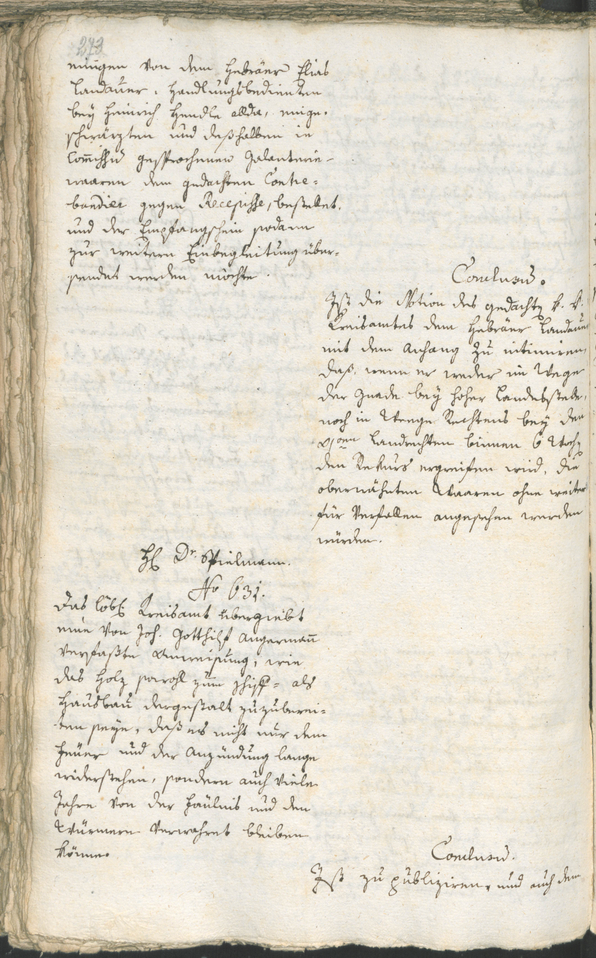 273
einigen von dem Hebräer Elias
Landauer, Handlungsbedienten
bey Heinrich Hendle allda, einge-
schwärzten und deßhalben in
Commissum gesprochenen Galanterie-
waaren dem gedachten Contre-
bandier gegen Recepisse, bestellet,
und der Empfangschein sodann
zur weitern Einbegleitung über-
sendet werden möchte.
Conclusum.
Ist die Notion des gedachten k. k.
Kreisamtes dem Hebräer Landauer
mit dem Anhang zu intimiren,
daß, wenn er weder im Wege
der Gnade bey hoher Landesstelle,
noch im Weege Rechtens bey den
Landrechten binnen 6 Woch
den Rekurs ergreifen wird, die
oberwähnten Waaren ohne weiter
für Verfallen angesehen werden
würden.
H. Dr. Spielmann.
No 631.
Das löbl. Kreisamt übergiebt
eine von Joh. Gotthilf Angermann
verfaßte Anweisung, wie
das Holz sowohl zum Schiff- als
Hausbau dergestalt zuzuberei-
ten seye, daß es nicht nur dem
Feuer und der Anzündung lange
widerstehen, sondern auch viele
Jahre von der Fäulnis und den
Würmern verwahret bleiben
könne.
Conclusum.
Ist zu publiziren, und auch dem